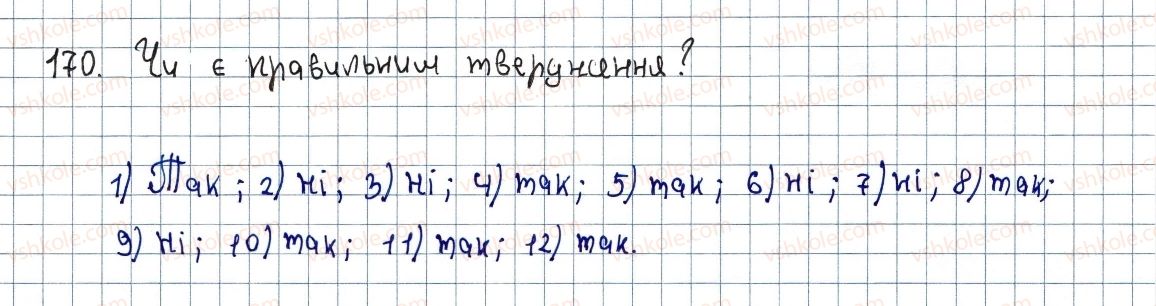 170. Чи є правильним твердження?
1) Так; 2) ні; 3) ні; 4) так; 5) так; 6) ні; 7) ні; 8) так;
9) ні; 10) так; 11) так; 12) так.